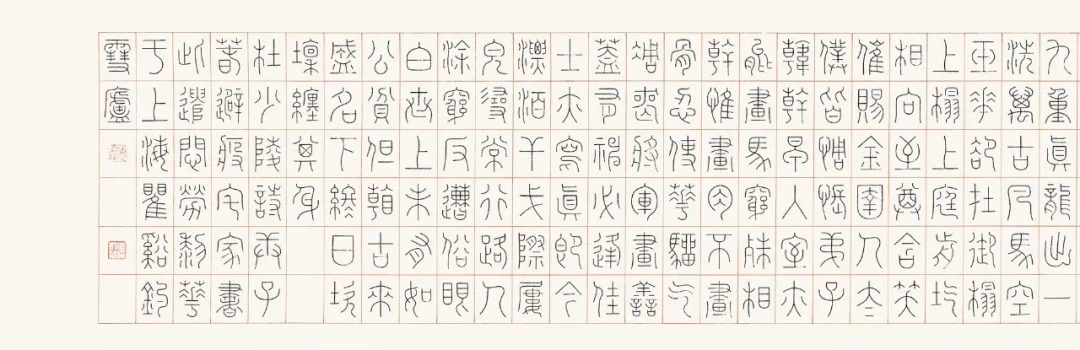 九重真龍出一
洗萬古凡馬空
玉花卻在御榻
上榻上庭前屹
相向至尊含笑
催賜金圉人太
僕皆惆悵弟子
韓幹早入室亦
能畫馬窮殊相
幹惟畫肉不畫
骨忍使驊騮氣
凋喪將軍畫善
蓋有神必逢佳
士亦寫真即今
漂泊干戈際屢
貌尋常行路人
塗窮反遭俗眼
白世上未有如
公貧但看古來
盛名下終日坎
壈纏其身
杜少陵詩庚子
春避疫宅家書
此遣悶勞黎華
于上海瞿谿釣
雪廬